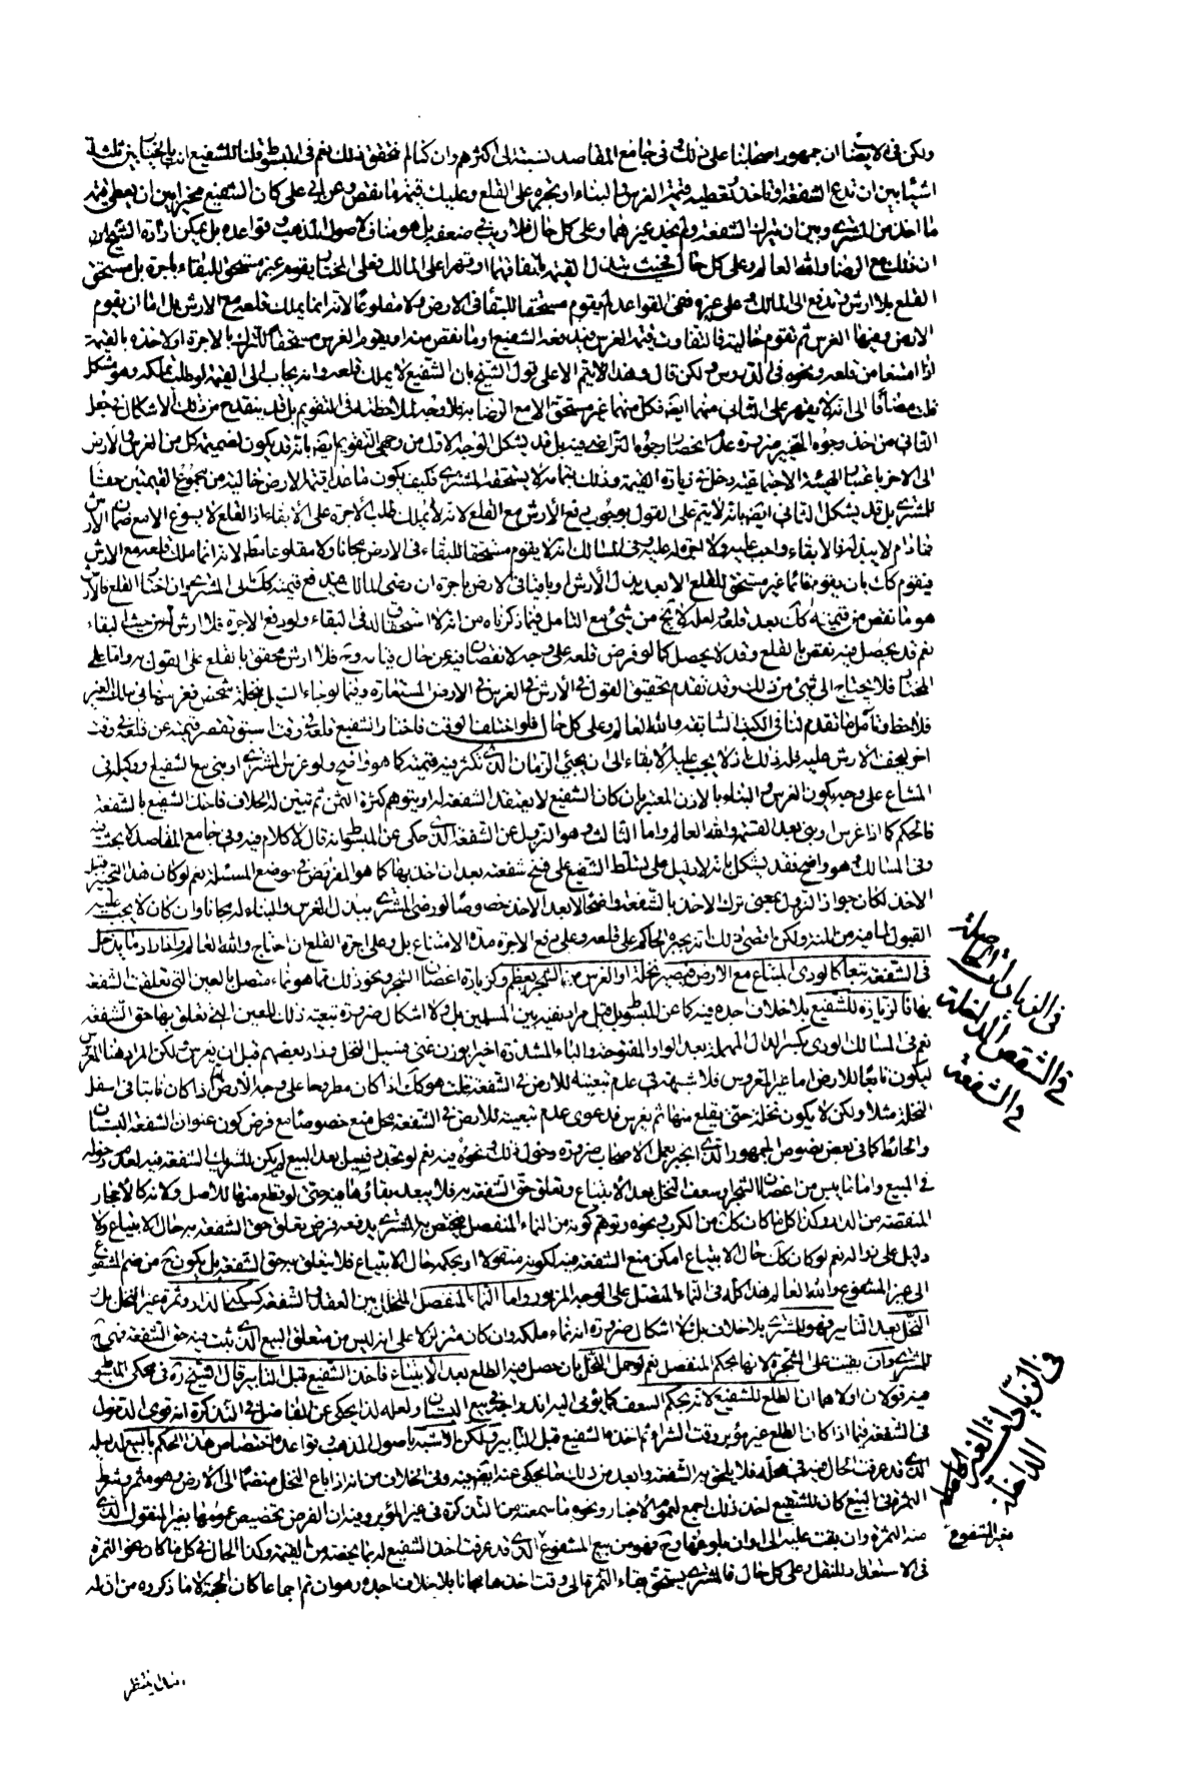 ولكن في الايضا ان جمهور اصحابنا على ذلك وفي جامع المقاصد نسبته الى اكثرهم وان كنا لم نتحقق ذلك نعم في المبسوط قلنا للشفيع انت بالخيار بين ثلثة
اشياء بين ان تدع الشفعة او تاخذ وتعطيه قيمة الغرس والبناء او تجبره على القلع وعليك قيمة ما نقص وعن ابي على كان الشفيع مخيرا بين ان يعطى قيمة
ما احدث المشترى وبين ان يترك الشفعة ولم نجد غيرهما وعلى كل حال فلا ريب في ضعفه بل هو مناف لاصول المذهب وقواعده بل يمكن ارادة الشيخين
ان ذلك مع الرضا والله العالم وعلى كل حال فحيث يبذل القيمة باتفاقهما او قهرا على المالك فعلى المختار يقوم غير مستحق للبقاء باجرة بل مستحق
القلع بلا ارش يدفع الى المالك وعلى غيره ففي القواعد لم يقوم مستحقا للبقاء في الارض ولا مقلوعا لانه انما يملك قلعه مع الارش بل اما ان يقوم
الارض وفيها الغرس ثم تقوم خالية فالتفاوت قيمة الغرس فيدفعه الشفيع او ما نقص منه او يقوم الغرس مستحقا للترك بالاجرة او لاخذه بالقيمة
اذا امتنعا من قلعه ونحوه في الدروس ولكن قال وهذا لا يتم الا على قول الشيخ بان الشفيع لا يملك قلعه وانه يجاب الى القيمة لو طلب تملكه وهو مشكل
قلت مضافا الى انه لا يقهر على الثاني منهما ايضا فكل منهما غير مستحق الا مع الرضا به فلا وجه لملاحظته في التقويم بل قد ينقدح من ذلك الاشكال في جعل
الثاني من احد وجوه التخيير
الى الاخر باعتبار الهيئة الاجتماعية دخل في زيادة القيمة وذلك بتمامه لا يستحقه المشترى فكيف يكون ما عدا قيمة الارض خالية من مجموع القيمتين حقا
للمشترى بل قد يشكل الثاني ايضا بانه لا يتم على القول بوجوب دفع الارش مع القلع لانه لا يملك طلب الاجرة على الابقاء اذ القلع لا يسوغ الا مع ضمان الارش
فما دام لا يبذله فالابقاء واجب عليه ولا اجرة له عليه وفي المسالك انه لا يقوم مستحقا للبقاء في الارض مجانا ولا مقلوعا مطلقا لانه انما ملك قلعه مع الارش
فيقوم كك بان يقوم قائما غير مستحق للقلع الا بعد بذل الارش او باقيا في الارض باجرة ان رضى المالك فيدفع قيمته كك الى المشترى وان اختار القلع فالارش
هو ما نقص من قيمته كك بعد قلعه ولعله لا يخ من شئ مع التامل فيما ذكرناه من انه لا استحقاق له في البقاء ولو دفع الاجرة فلا ارش له من حيث البقاء
نعم قد يحصل فيه نقص بالقلع وقد لا يحصل كما لو فرض قلعه على وجه لا نقصان فيه عن حال قيامه وح فلا ارش محقق بالقلع على القول به واما على
المختار فلا يحتاج الى شئ من ذلك وقد تقدم تحقيق القول في الارش في الغرس في الارض المستعارة وفيما لو جاء السيل بنخلة شخص فغرسها في ملك الغير
فلاحظ وتامل ما تقدم لنا في الكتب السابقة والله العالم وعلى كل حال فلو اختلف الوقت فاختار الشفيع قلعه في وقت اسبق وتقصر قيمته عن قلعه في وقت
اخر ليخف الارش عليه فله ذلك اذ لا يجب عليه الابقاء الى ان يجئ الزمان الذى تكثر فيه قيمته كما هو واضح ولو غرس المشترى او بنى مع الشفيع او وكيله في
المشاع على وجه يكون الغرس والبناء بالاذن المعتبر بان كان الشفيع لا يعتقد الشفعة له او يتوهم كثرة الثمن ثم تبين له الخلاف فاخذ الشفيع بالشفعة
فالحكم كما اذا غرس او بنى بعد القسمة والله العالم واما الثالث وهو النزول عن الشفعة الذى حكى عن المبسوط انه قال لا كلام فيه وفي جامع المقاصد لا بحث فيه
وفي المسالك هو واضح فقد يشكل بانه لا دليل على تسلط الشفيع على فسخ شفعته بعد ان اخذ بها كما هو المفروض في موضع المسئلة نعم لو كان هذا التخيير قبل
الاخذ لكان جواز النزول بمعنى ترك الاخذ بالشفعة واضحا لا بعد الاخذ خصوصا لو رضى المشترى ببذل الغرس والبناء له مجانا وان كان لا يجب عليه
القبول لما فيه من المنة ولكن اقصى ذلك انه يجبره الحاكم على قلعه وعلى دفع الاجرة مدة الامتناع بل وعلى اجرة القلع ان احتاج والله العالم واذا زاد ما يدخل
في الشفعة تبعا كالودى المبتاع مع الارض فيصير نخلا او الغرس من الشجر يعظم وكزيادة اغصان الشجر ونحو ذلك مما هو نماء متصل بالعين التي تعلقت الشفعة
بها فالزيادة للشفيع بلا خلاف اجده فيه كما عن المبسوط بل قيل مراده نفيه بين المسلمين بل ولا اشكال ضرورة تبعيته ذلك للعين التى تعلق بها حق الشفعة
نعم في المسالك الودى بكسر الدال المهملة بعد الواو المفتوحة والياء المشددة اخيرا بوزن غنى فسيل النخل وزاد بعضهم قبل ان يغرس ولكن المراد هنا المغروس
ليكون تابعا للارض اما غير المغروس فلا شبهة في عدم تبعيته للارض في الشفعة قلت هو كك اذا كان مطروحا على وجه الارض اما اذا كان نابتا في اسفل
النخلة مثلا ولكن لا يكون نخلة حتى يقلع منها ثم يغرس قد عوى عدم تبعيته للارض في الشفعة محل منع خصوصا مع فرض كون عنوان الشفعة البستان
والحائط كما في بعض نصوص الجمهور الذى انجبر بعمل الاصحاب ضرورة دخول ذلك ونحوه فيه نعم لو تجدد فسيل بعد البيع لم يكن للشريك الشفعة فيه لعدم دخوله
في البيع واما ما يبس من اغصان الشجر وسعف النخل بعد الابتياع وتعلق حق الشفعة به فلا يبعد بقاؤها فيه حتى لو قطع منها للاصل ولانه كالاحجار
المنفصلة من الدار وكذا كل ما كان كك من الكرب ونحوه وتوهم كونه من النماء المنفصل فيختص به المشترى يدفعه فرض تعلق حق الشفعة به حال الابتياع ولا
دليل على زواله نعم لو كان كك حال الابتياع امكن منع الشفعة فيه لكونه منقولا او بحكمه حال الابتياع فلا يتعلق به حق الشفعة بل يكون ح من ضم المشفوع
الى غير المشفوع والله العالم هذا كله في النماء المتصل على الوجه المزبور واما النماء المنفصل المتخلل بين العقد والشفعة كسكنى الدار وثمرة غير النخل بل
النخل بعد التابير فهو للمشترى بلا خلاف بل ولا اشكال ضرورة انه نماء ملكه وان كان متزلزلا على انه ليس من متعلق البيع الذى ثبت فيه حق الشفعة فهي ح
للمشترى وان بقيت على الشجرة لانها بحكم المنفصل نعم لو حمل النخل بان حصل فيه الطلع بعد الابتياع فاخذ الشفيع قبل التابير قال الشيخ ره في محكى المبسوط
فيه قولان اولاهما ان الطلع للشفيع لانه بحكم السعف كما يؤمى اليه اندراجه في بيع البستان ولعله لذا يحكى عن الفاضل في التذكرة انه قوى الدخول
في الشفعة فيما اذا كان الطلع غير مؤبر وقت الشراء ثم اخذه الشفيع قبل التابير ولكن الاشبه باصول المذهب وقواعده اختصاص هذا الحكم بالبيع لدليله
الذى قد عرفت الحال فيه في محله فلا يلحق به الشفعة وابعد من ذلك ما يحكى عنه ايضا فيه وفي الخلاف من انه اذا باع النخل منضما الى الارض وهو مثمر وشرط
الثمرة في البيع كان للشفيع اخذ ذلك اجمع لعموم الاخبار ونحوه ما سمعته من التذكرة في غير المؤبر وفيه ان الفرض تخصيص عمومها بغير المنقول الذى
منه الثمرة وان بقيت عليه الى اوان بلوغها وح فهو من بيع المشفوع الذى قد عرفت اخذ الشفيع له بما يخصه من القيمة وكذا الحال في كل ما كان نحو الثمرة
في الاستعداد للنقل وعلى كل حال فالمشترى يستحق بقاء الثمرة الى وقت اخذها مجانا بلا خلاف اجده وهو ان تم اجماعا كان الحجة لا ما ذكروه من ان له
في الزيادات الحاصلة
في الشقص الداخلة
في الشفعة
في الزيادات الغير
الداخلة